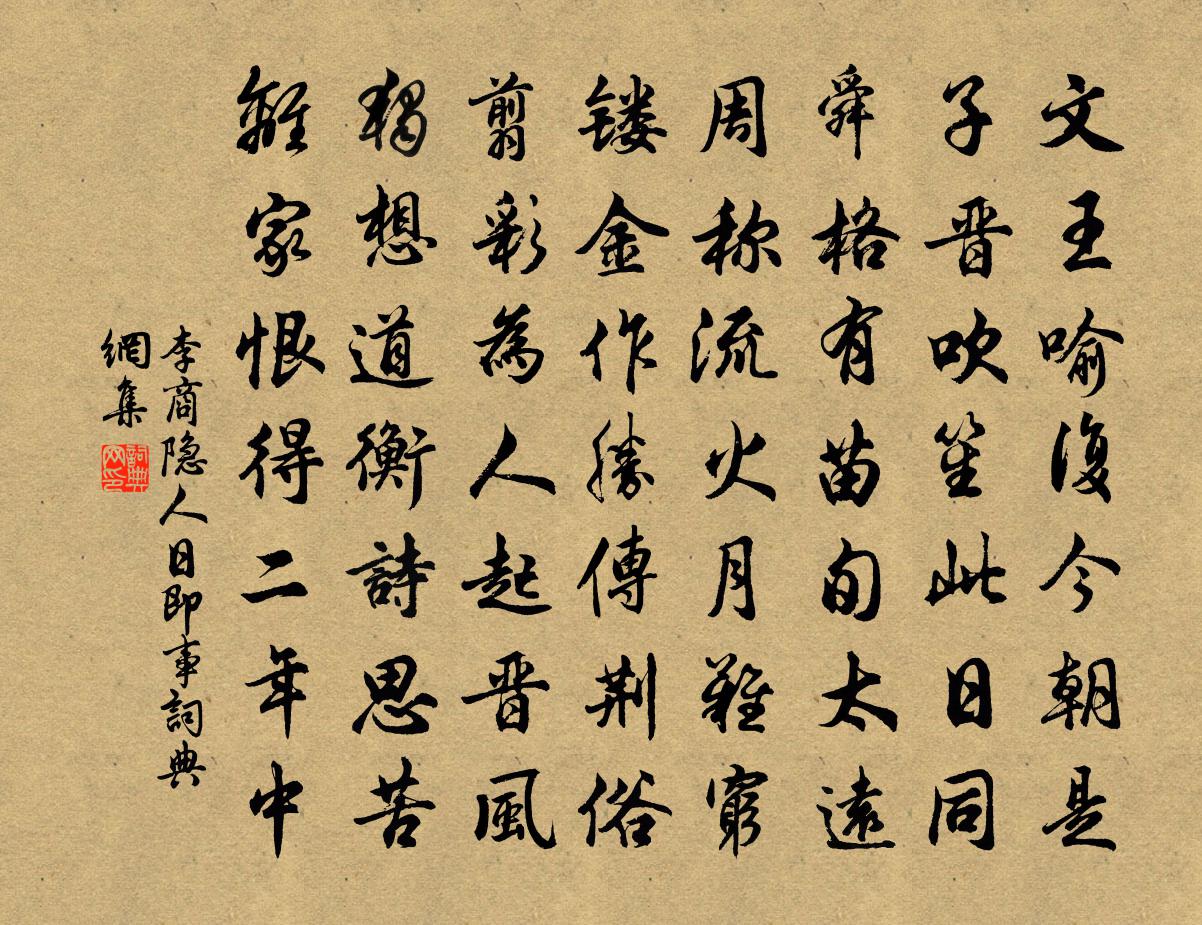 文王喻復今朝是
子晋吹笙此日同
舜格有苗旬太遠
周称流火月難窮
镂金作勝傳荆俗
翦彩為人起晋風
独想道衡詩思苦
離家恨得二年中
李商隐人日即事詞典
網集
詞典网印